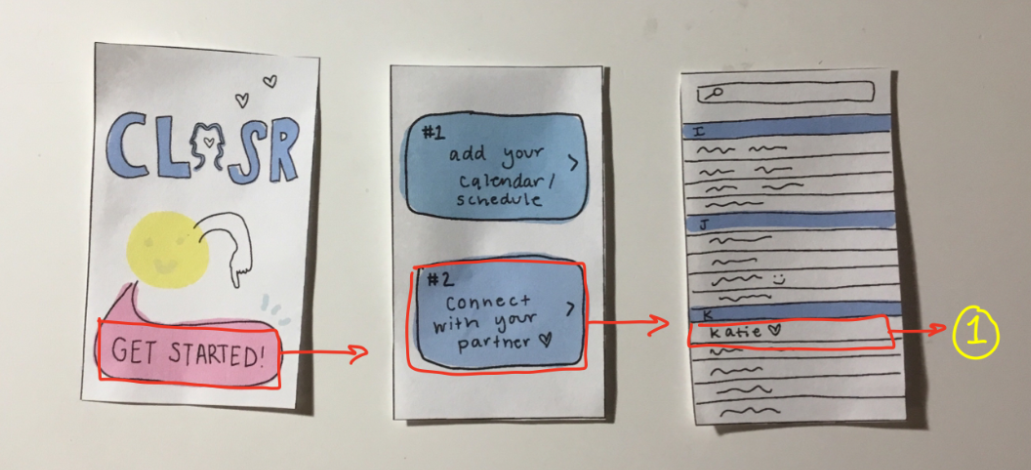 CLOSR
GET STARTED!
#1
add your
calendar/
schedule
#2
connect
with your
partner
I
J
K
Katie
1